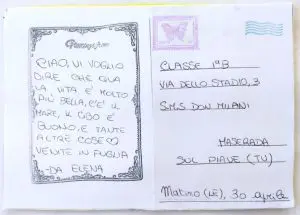 CIAO, VI VOGLIO
DIRE CHE QUA
LA VITA È MOLTO
PIÙ BELLA, C'È IL
MARE, IL CIBO È
BUONO, E TANTE
ALTRE COSE
VENITE IN PUGLIA
-DA ELENA
CLASSE 1ªB
VIA DELLO STADIO, 3
S.M.S DON MILANI
MASERADA
SUL PIAVE (TV)
Matino (LE), 30 aprile